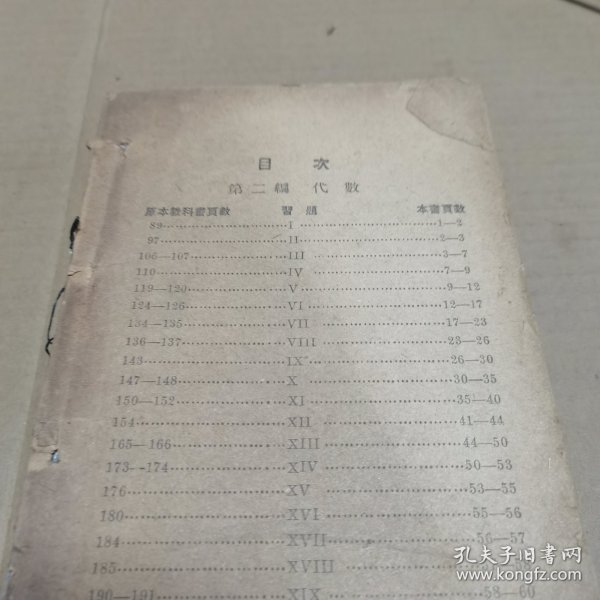 目 次
第二編 代數
原本教科書頁數 習題 本書頁數
89 I 1—2
97 II 2—3
106—107 III 3—7
110 IV 7—9
119—120 V 9—12
124—126 VI 12—17
134—135 VII 17—23
136—137 VIII 23—26
143 IX 26—30
147—148 X 30—35
150—152 XI 35—40
154 XII 41—44
165—166 XIII 44—50
173--174 XIV 50—53
176 XV 53—55
180 XVI 55—56
184 XVII 56—57
185 XVIII
190—191 XIX 58—60
孔夫子旧書网
www.kongfz.com